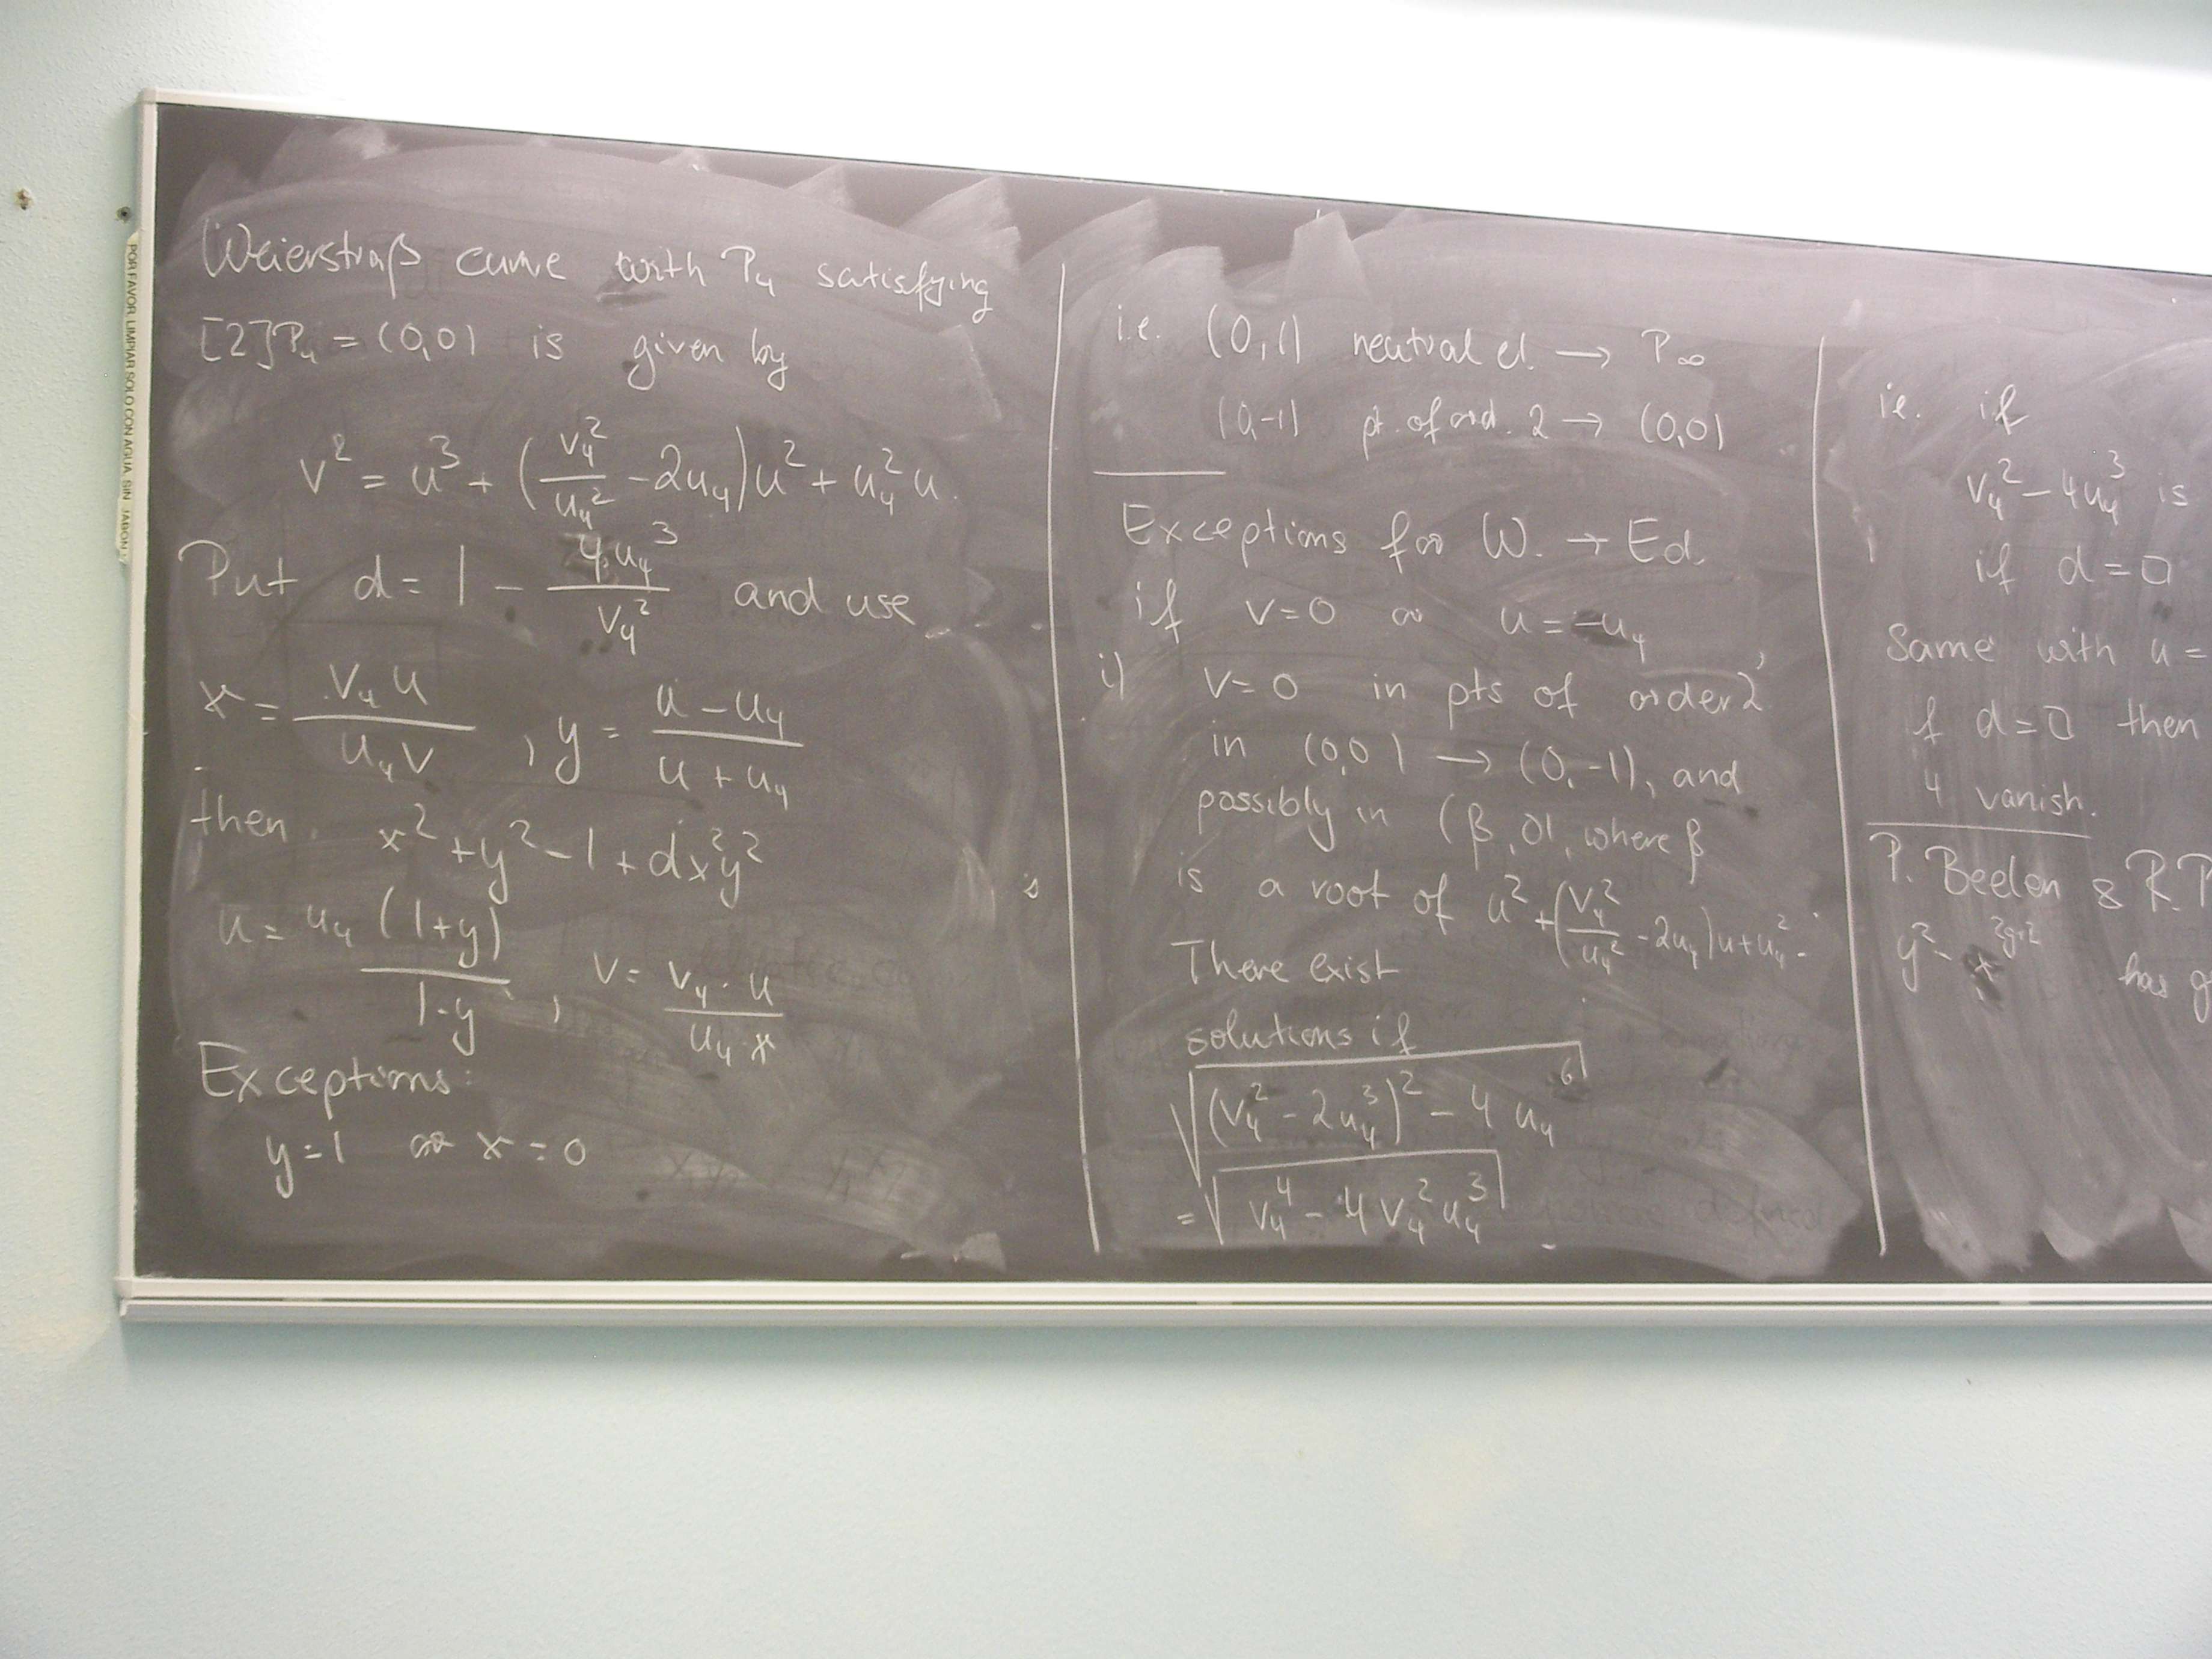 Weierstraß curve with P₄ satisfying
[2]P₄ = (0,0) is given by
v² = u³ + (v₄²/u₄² - 2u₄)u² + u₄²u.
Put d = 1 - 4u₄³/v₄² and use
x = v₄u/u₄v , y = u - u₄/u + u₄
then x² + y² - 1 + dx²y²
u = u₄(1+y)/1-y , v = v₄·u/u₄·x
Exceptions:
y=1 or x=0
i.e. (0,1) neutral el. → P∞
(0,-1) pt. of ord. 2 → (0,0)
Exceptions for W. → Ed.
if v=0 or u=-u₄
i) v=0 in pts of order 2,
in (0,0) → (0,-1), and
possibly in (β,0), where β
is a root of u² + (v₄²/u₄² - 2u₄)u + u₄².
There exist
solutions if
√((v₄² - 2u₄³)² - 4u₄⁶)
= √(v₄⁴ - 4v₄²u₄³)
i.e. if
v₄² - 4u₄³ is
if d=□
Same with u =
if d=□ then
4 vanish.
P. Beelen & R.P
y² - x²ᵍ⁺²
has g
POR FAVOR, LIMPIAR SOLO CON AGUA SIN JABON